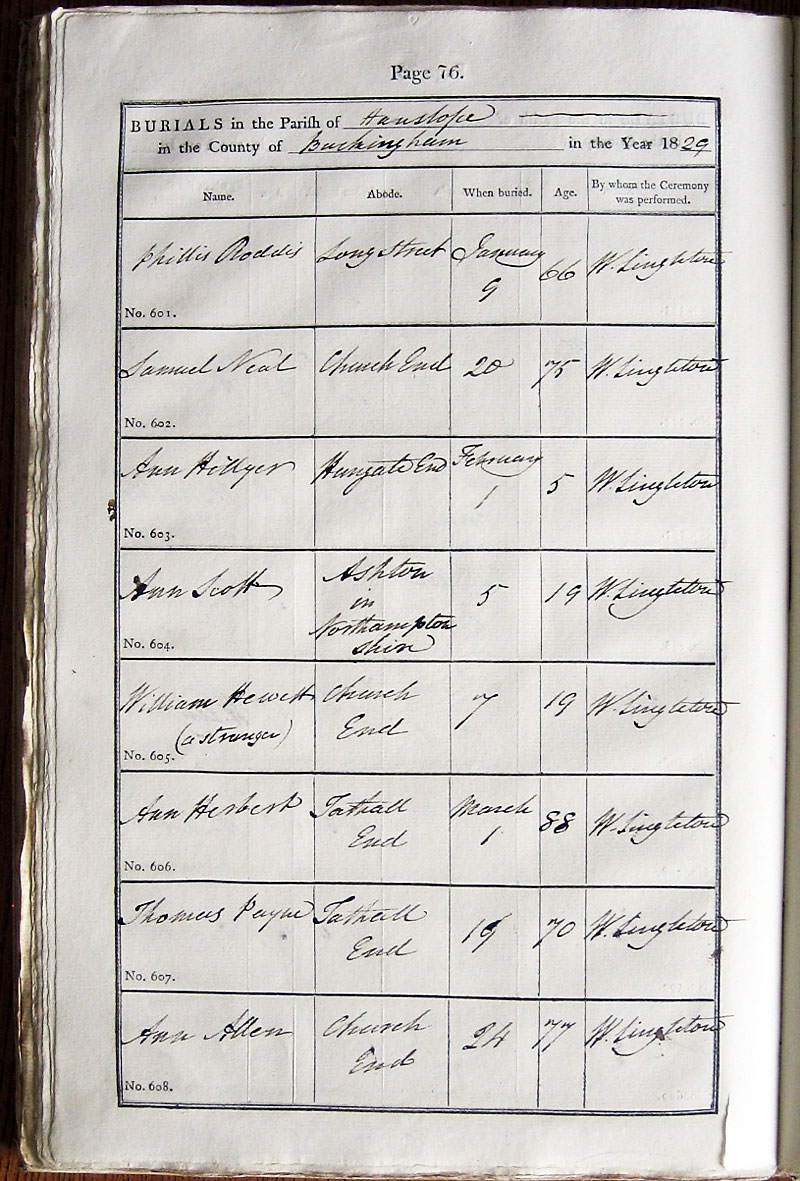 Page 76.
BURIALS in the Parish of Hanslope
in the County of Buckingham in the Year 1829
Name. Abode. When buried. Age. By whom the Ceremony was performed.
Phillis Roddis Long Street January 9 66 W. Singleton
No. 601.
Samuel Neal Church End 20 75 W. Singleton
No. 602.
Ann Hillyer Hungate End February 1 5 W. Singleton
No. 603.
Ann Scott Ashton in Northampton shire 5 19 W. Singleton
No. 604.
William Hewett Church End 7 19 W. Singleton
(a stranger)
No. 605.
Ann Herbert Tathall End March 1 88 W. Singleton
No. 606.
Thomas Payne Tathall End 19 70 W. Singleton
No. 607.
Ann Allen Church End 24 77 W. Singleton
No. 608.